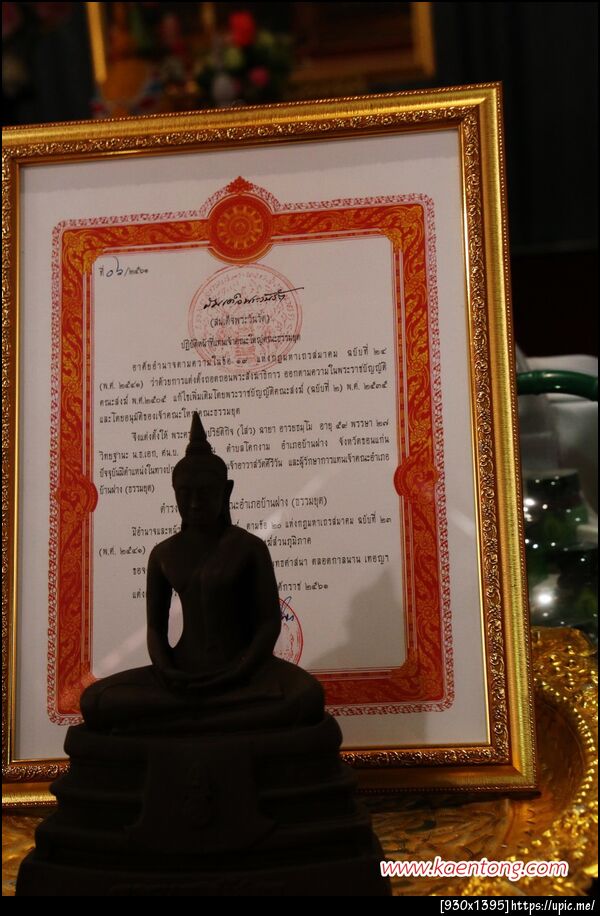 ที่ ๐๖/๒๕๖๑
(สมเด็จพระวันรัต)
ปฏิบัติหน้าที่แทนเจ้าคณะใหญ่คณะธรรมยุต
อาศัยอำนาจตามความในข้อ ๑๙ แห่งกฎมหาเถรสมาคม ฉบับที่ ๒๔
(พ.ศ. ๒๕๔๑) ว่าด้วยการแต่งตั้งถอดถอนพระสังฆาธิการ ออกตามความในพระราชบัญญัติ
คณะสงฆ์ พ.ศ.๒๕๐๕ แก้ไขเพิ่มเติมโดยพระราชบัญญัติคณะสงฆ์ (ฉบับที่ ๒) พ.ศ. ๒๕๓๕
และโดยอนุมัติของเจ้าคณะใหญ่คณะธรรมยุต
จึงแต่งตั้งให้ พระค ปริยัติกิจ (ไสว) ฉายา อารยธมฺโม อายุ ๕๙ พรรษา ๒๗
วิทยฐานะ น.ธ.เอก, ศน.บ. ตำบลโคกงาม อำเภอบ้านฝาง จังหวัดขอนแก่น
ปัจจุบันมีตำแหน่งในทางปก เจ้าอาวาสวัดศิริวัน และผู้รักษาการแทนเจ้าคณะอำเภอ
บ้านฝาง (ธรรมยุต)
ดำรง ณะอำเภอบ้านฝาง (ธรรมยุต)
มีอำนาจและหน้า ตามข้อ ๒๐ แห่งกฎมหาเถรสมาคม ฉบับที่ ๒๓
(พ.ศ. ๒๕๔๑) ฆ์ส่วนภูมิภาค
ขอจ ทธศาสนา ตลอดกาลนาน เทอญฯ
แต่ง ักราช ๒๕๖๑
www.kaentong.com
[930x1395]https://upic.me/